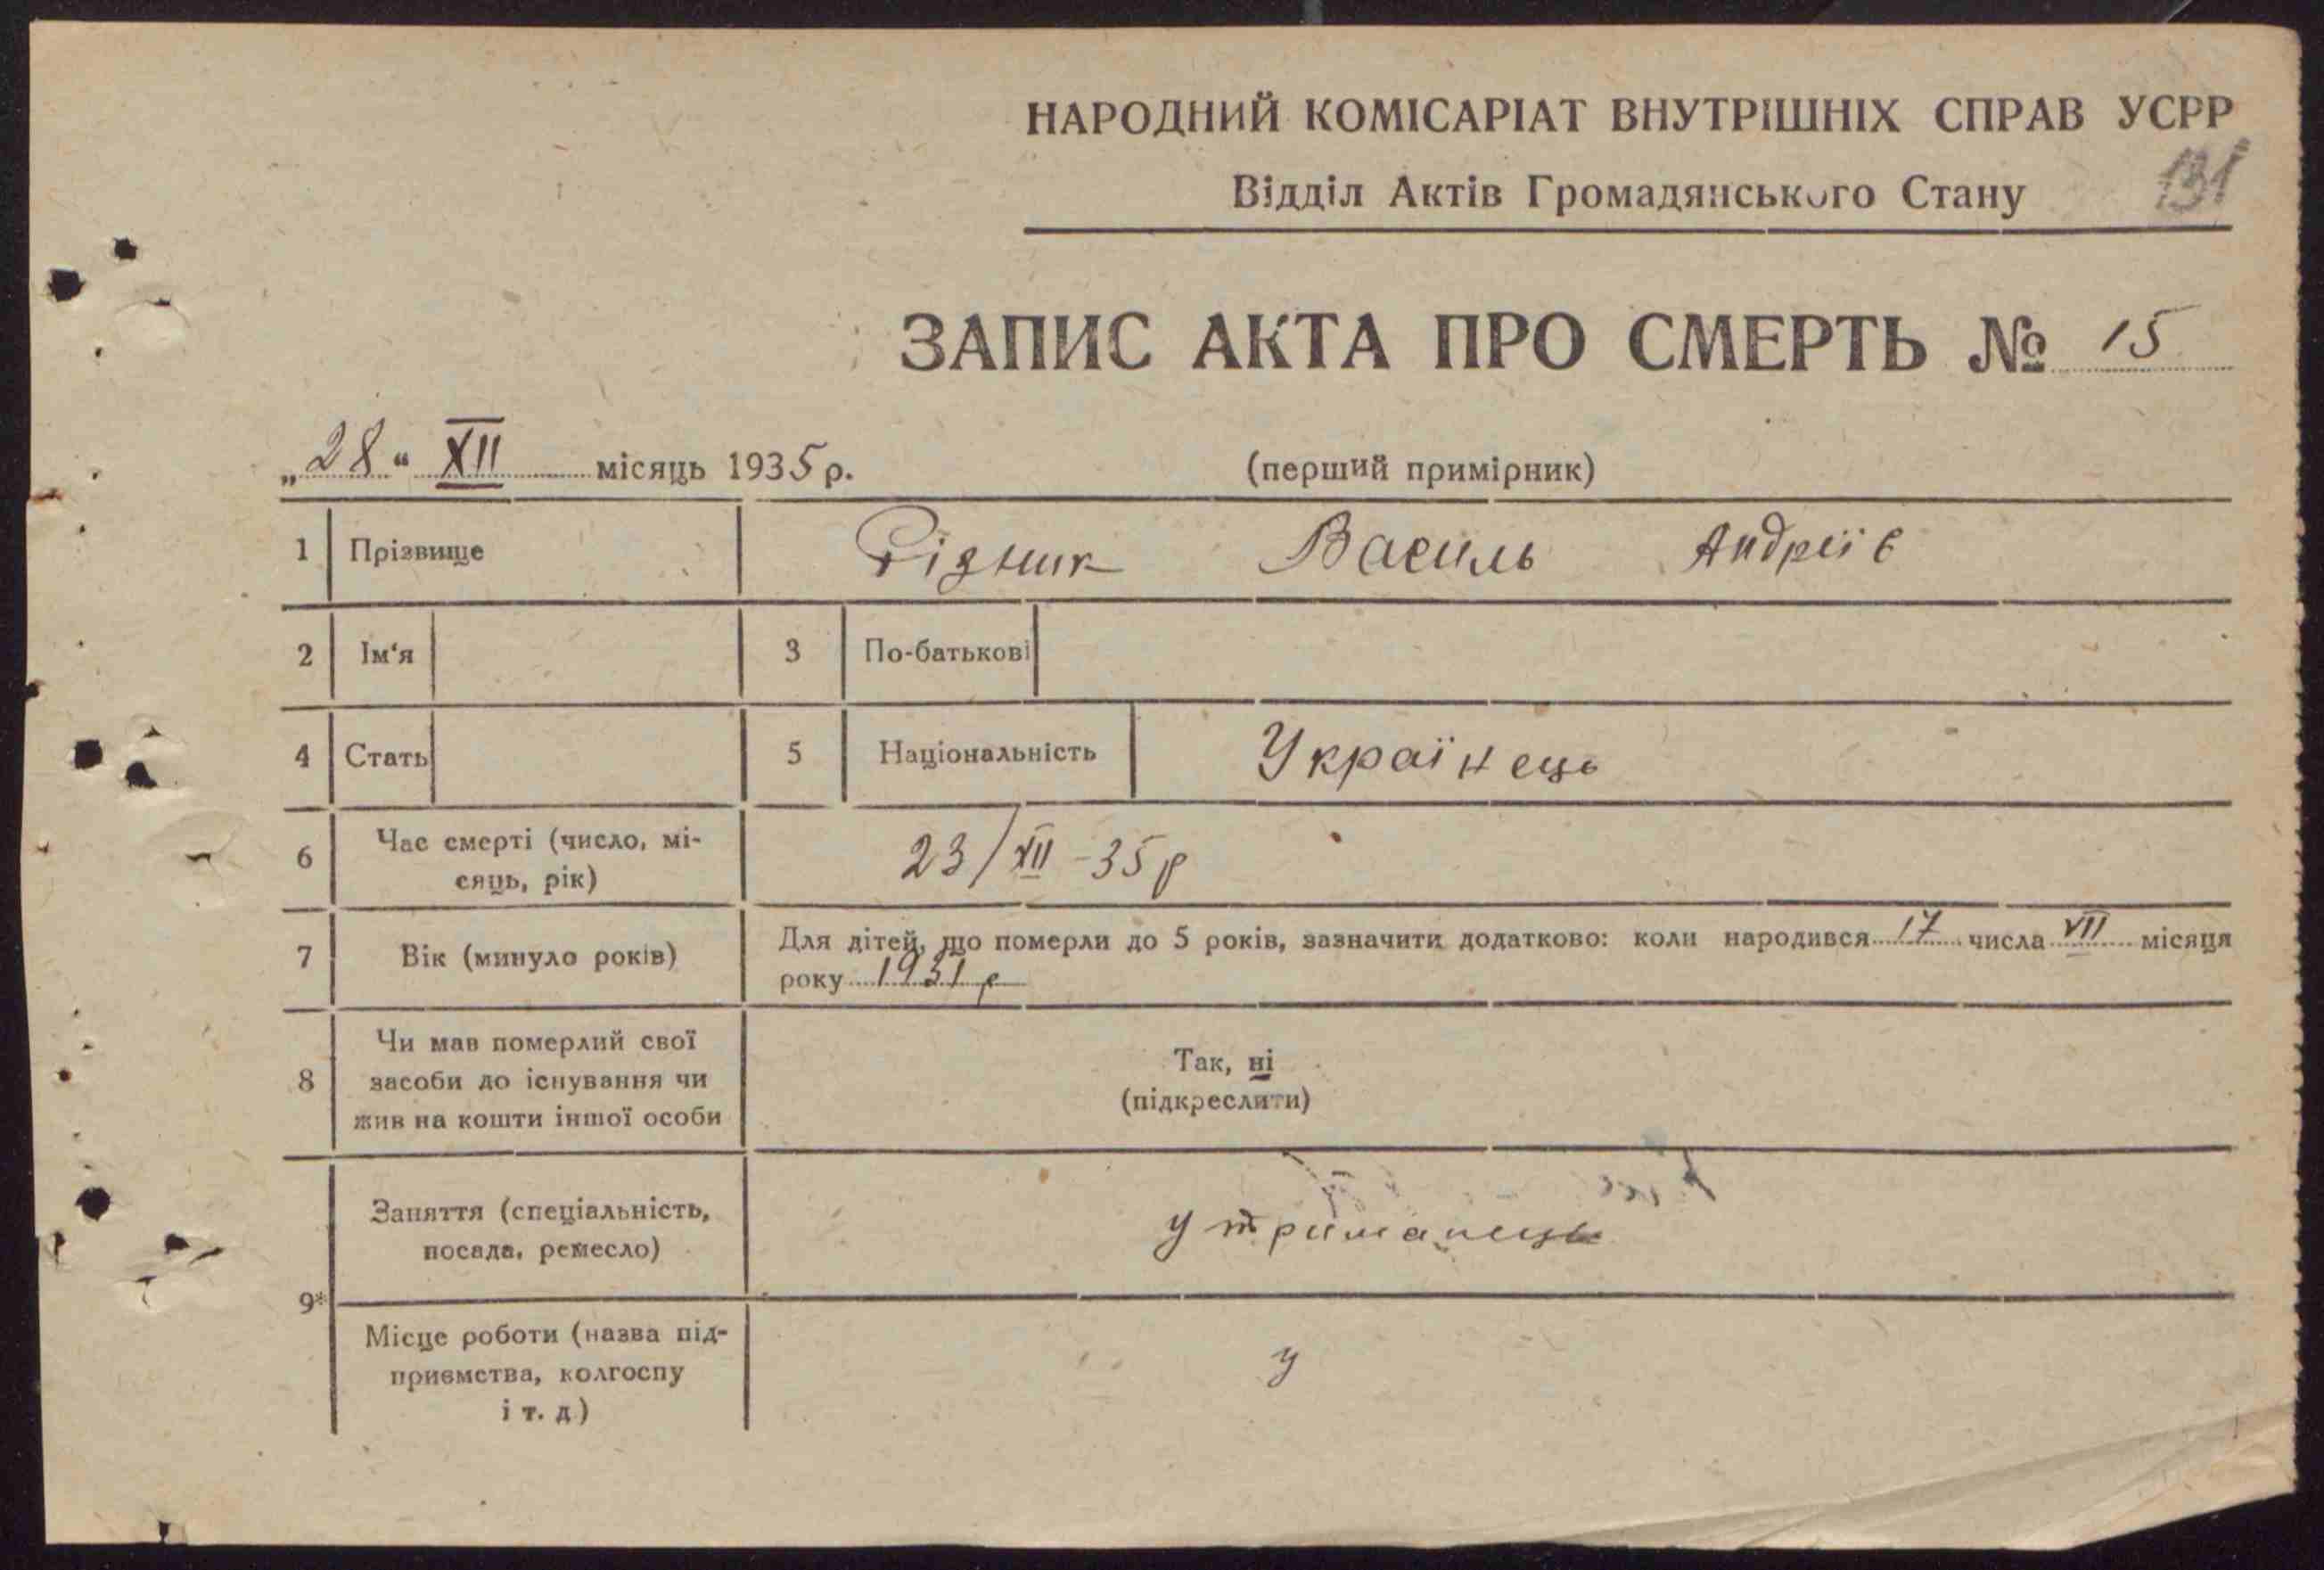 НАРОДНИЙ КОМІСАРІАТ ВНУТРІШНІХ СПРАВ УСРР
Відділ Актів Громадянського Стану 131
ЗАПИС АКТА ПРО СМЕРТЬ № 15
„28“ XII місяць 1935 р.
(перший примірник)
1 Прізвище Різник Василь Андріїв
2 Ім‘я 3 По-батькові
4 Стать 5 Національність Українець
6 Час смерті (число, мі-
сяць, рік)
23/XII-35р
7 Вік (минуло років)
Для дітей, що померли до 5 років, зазначити додатково: коли народився 17 числа VII місяця
року 1931 р
8 Чи мав померлий свої
засоби до існування чи
жив на кошти іншої особи
Так, ні
(підкреслити)
9* Заняття (спеціальність,
посада, ремесло)
утриманець
Місце роботи (назва під-
приємства, колгоспу
і т. д)
у